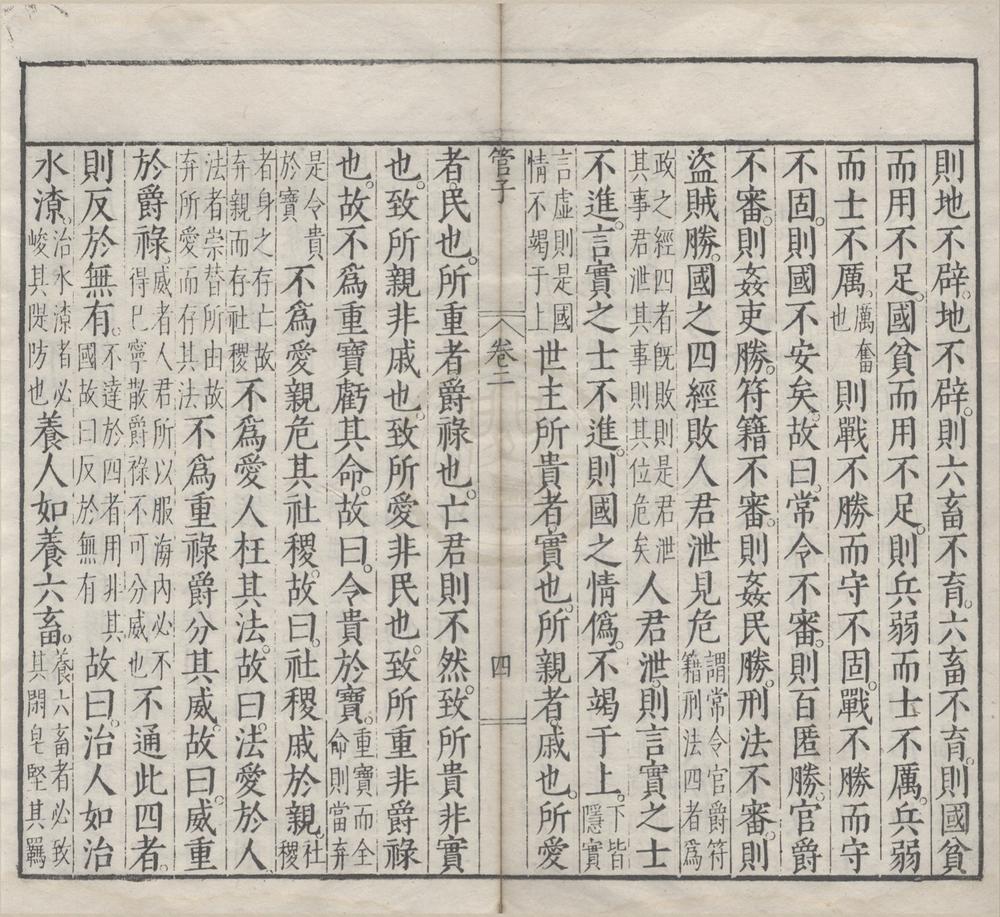 則地不辟。地不辟。則六畜不育。六畜不育。則國貧
而用不足。國貧而用不足。則兵弱而士不厲。兵弱
而士不厲。厲奮也則戰不勝而守不固。戰不勝而守
不固。則國不安矣。故曰。常令不審。則百匿勝。官爵
不審。則姦吏勝。符籍不審。則姦民勝。刑法不審。則
盜賊勝。國之四經敗人君泄見危謂常令官爵符籍刑法四者爲
政之經四者旣敗則是君泄其事君泄其事則其位危矣人君泄。則言實之士
不進。言實之士不進。則國之情僞。不竭于上。下皆隱實
言虛則是國情不竭于上世主所貴者實也。所親者。戚也。所愛
管子
卷二
四
者。民也。所重者爵祿也。亡君則不然。致所貴非實
也。致所親非戚也。致所愛非民也。致所重非爵祿
也。故不爲重寶虧其命。故曰。令貴於寶。重寶而全命則當弃
是令貴於寶不爲愛親危其社稷。故曰。社稷戚於親。社稷
者身之存亡故弃親而存社稷不爲愛人枉其法。故曰。法愛於人
法者崇替所由故弃所愛而存其法不爲重祿爵分其威。故曰。威重
於爵祿。威者人君所以服海內必不得已寧散爵祿不可分威也不通此四者。
則反於無有。不達於四者用非其國故曰反於無有故曰。治人如治
水潦。治水潦者必峻其隄防也養人如養六畜。養六畜者必致其閑皂堅其羈